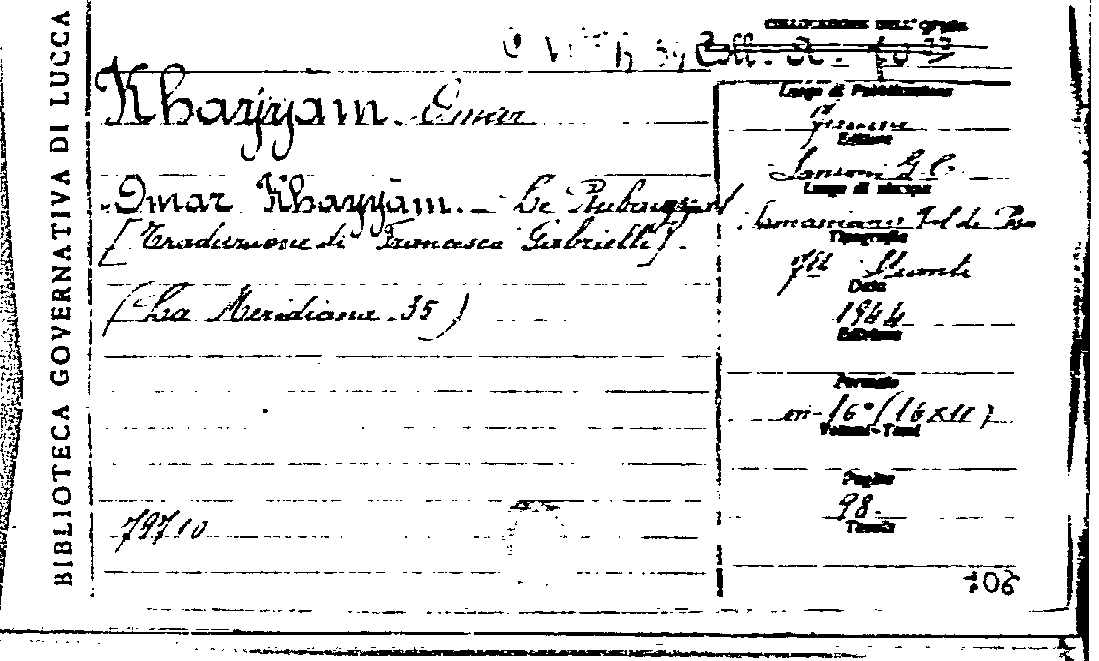 BIBLIOTECA GOVERNATIVA DI LUCCA
COLLOCAZIONE DELL'OPERA
Coll. A.
Khayyam Omar
Omar Khayyâm. - Le Rubaiyyat
[Traduzione di Francesco Gabrielli].
(La Meridiana. 35)
79710
Luogo di Pubblicazione
Firenze
Editore
Sansoni G. C.
Luogo di stampa
Tipografia
Data
1944
Edizione
Formato
in-16° (16x11)
Volumi-Tomi
Pagine
98.
Tavole
106